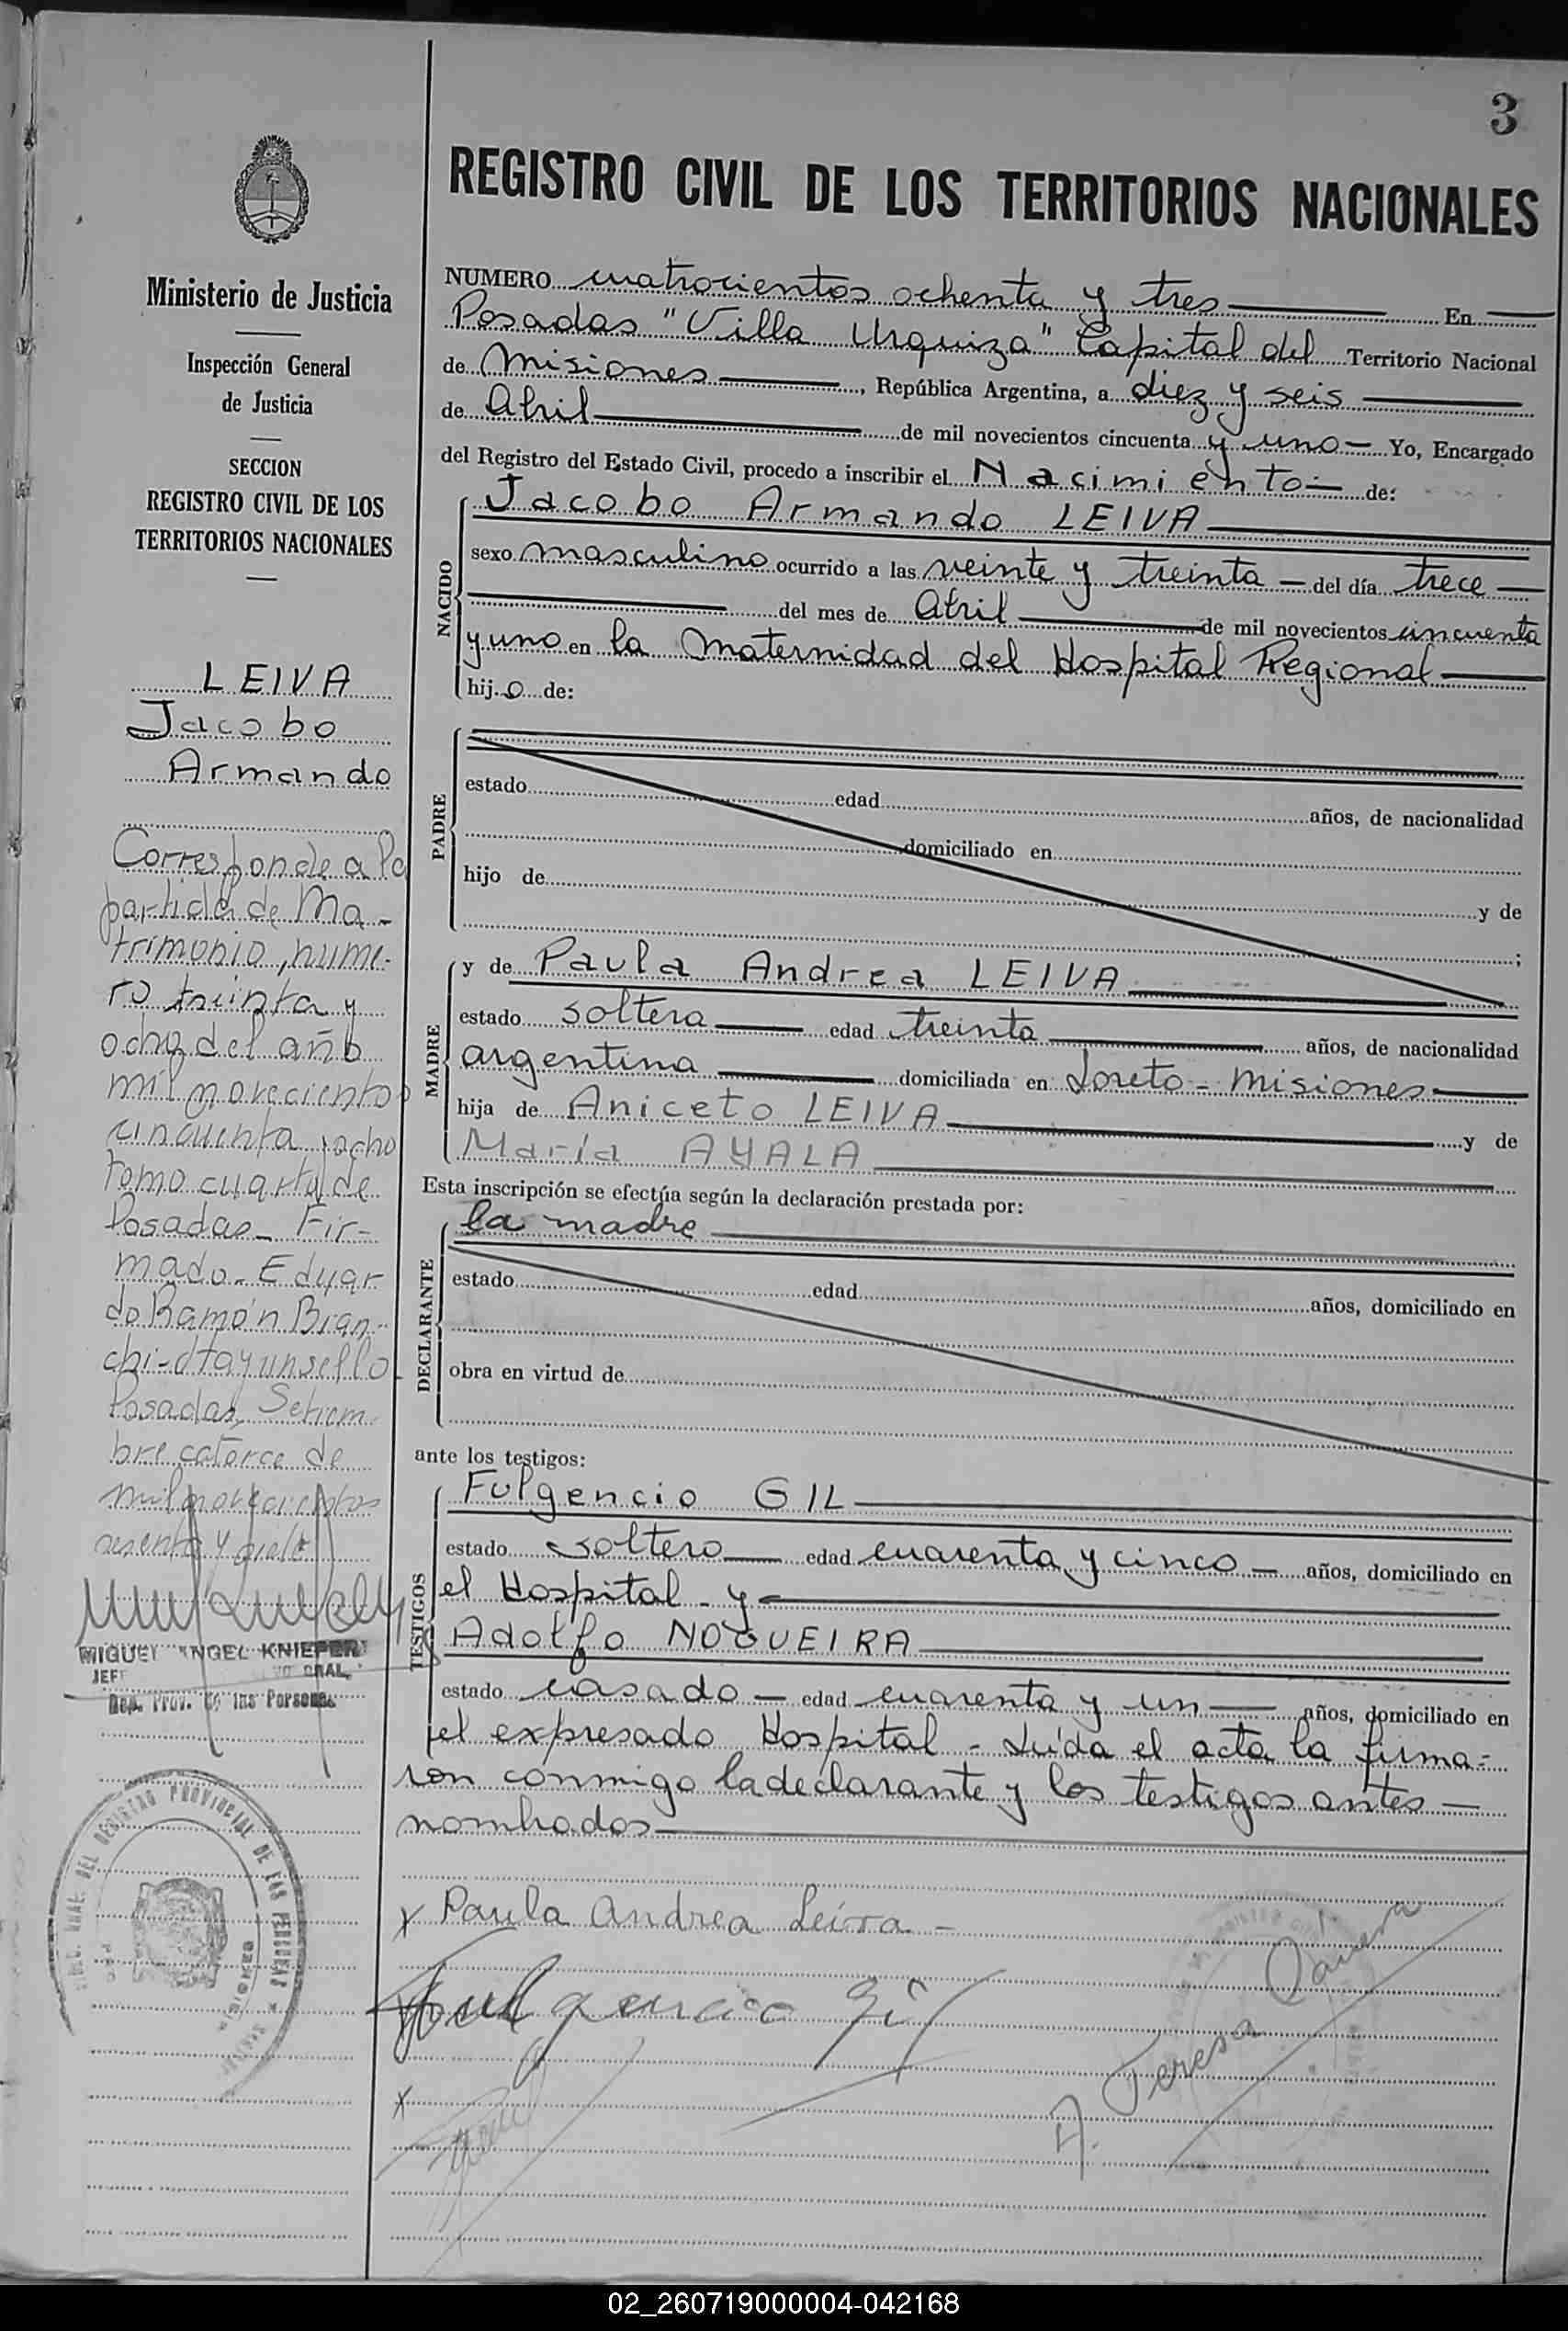 3
REGISTRO CIVIL DE LOS TERRITORIOS NACIONALES
Ministerio de Justicia
Inspección General
de Justicia
SECCION
REGISTRO CIVIL DE LOS
TERRITORIOS NACIONALES
LEIVA
Jacobo
Armando
Corresponde a la
partida de Ma-
trimonio, núme-
ro treinta y
ocho del año
mil novecientos
cincuenta y ocho
tomo cuarto de
Posadas_ Fir-
mado_ Eduar
do Ramón Bian-
chi-
Posadas, Setiem
bre catorce de
mil novecientos
MIGUEL ANGEL KNIEPER
NUMERO cuatrocientos ochenta y tres En
Posadas "Villa Urquiza" Capital del Territorio Nacional
de Misiones, República Argentina, a diez y seis
de Abril de mil novecientos cincuenta y uno Yo, Encargado
del Registro del Estado Civil, procedo a inscribir el Nacimiento de:
NACIDO
Jacobo Armando LEIVA
sexo masculino ocurrido a las veinte y treinta del día trece
del mes de Abril de mil novecientos cincuenta
y uno en la Maternidad del Hospital Regional
hijo de:
PADRE
estado edad años, de nacionalidad
domiciliado en
hijo de y de
;
MADRE
y de Paula Andrea LEIVA
estado soltera edad treinta años, de nacionalidad
argentina domiciliada en Loreto - Misiones
hija de Aniceto LEIVA y de
María AYALA
Esta inscripción se efectúa según la declaración prestada por:
DECLARANTE
la madre
estado edad años, domiciliado en
obra en virtud de
ante los testigos:
TESTIGOS
Fulgencio GIL
estado soltero edad cuarenta y cinco años, domiciliado en
el Hospital - y
Adolfo NOGUEIRA
estado casado edad cuarenta y un años, domiciliado en
el expresado Hospital - Leída el acta la firma-
ron conmigo la declarante y los testigos antes
nombrados
x Paula Andrea Leiva -
Fulgencio Gil
x
A. Teresa
02_260719000004-042168